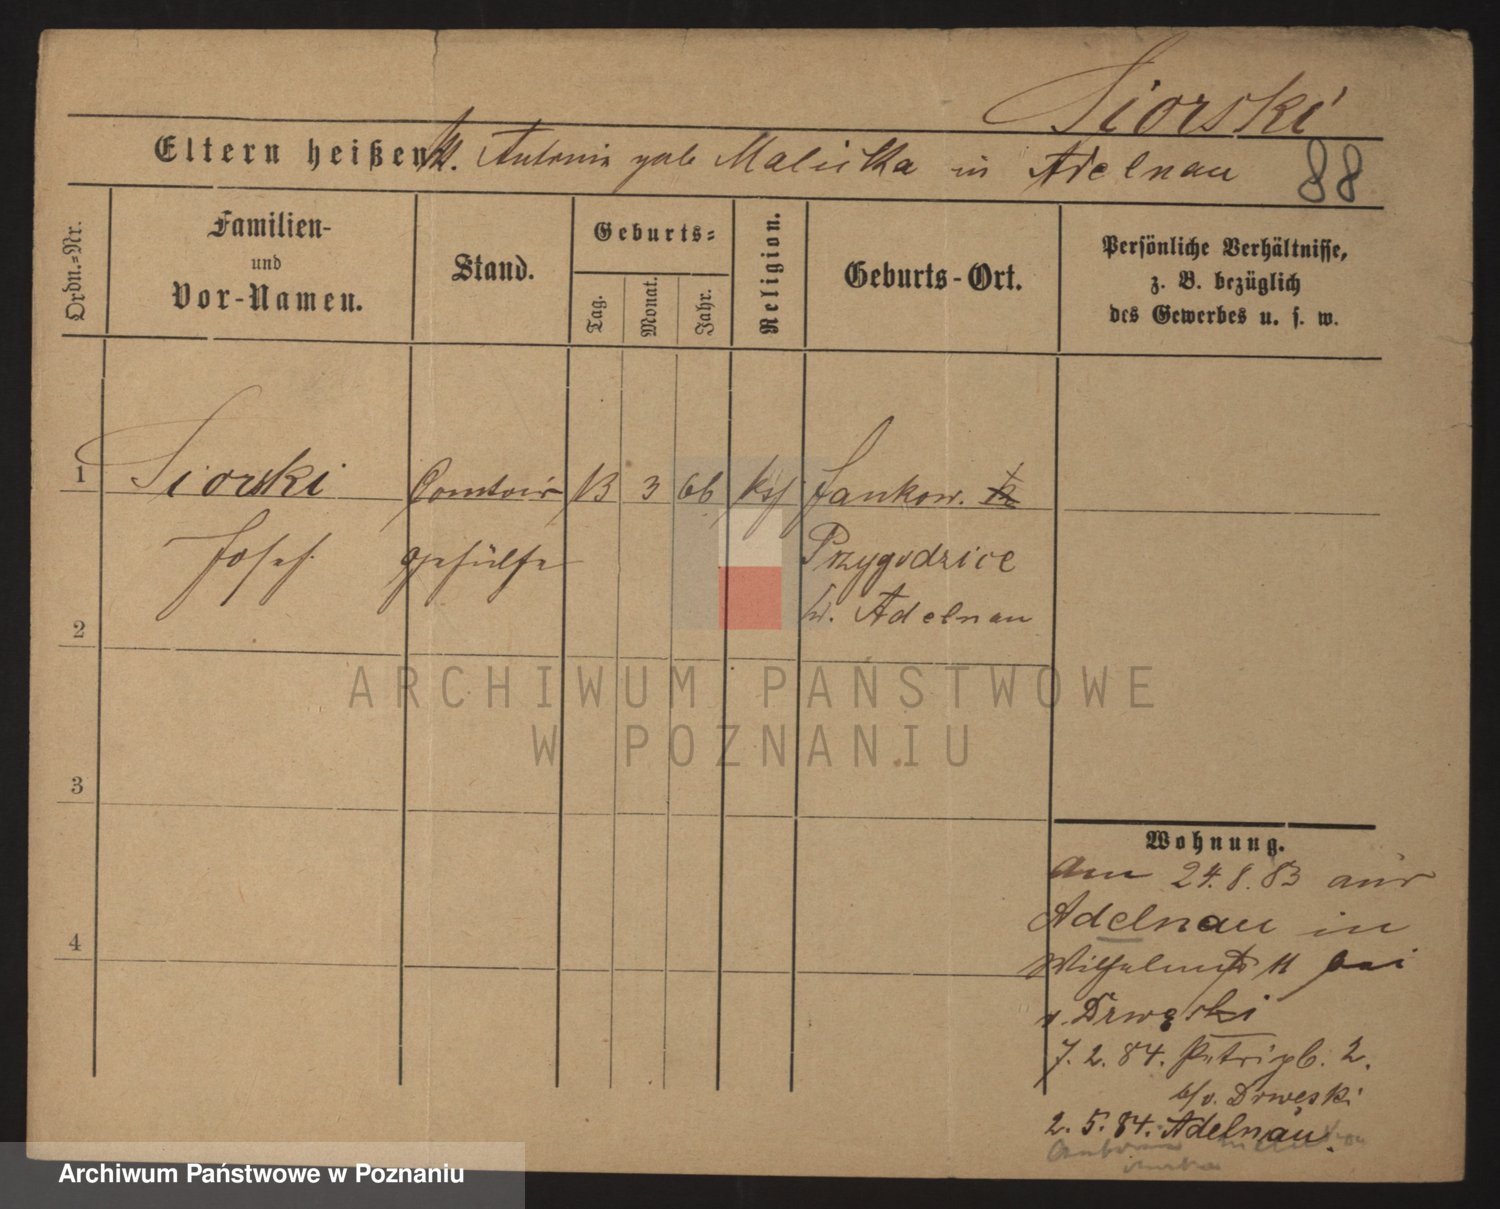 Siorski
Eltern heißen M. Antonie geb Malicka in Adelnau 88
Ordn.-Nr.
Familien-
und
Vor-Namen.
Stand.
Geburts-
Tag.
Monat.
Jahr.
Religion.
Geburts-Ort.
Persönliche Verhältnisse,
z. B. bezüglich
des Gewerbes u. s. w.
1 Siorski Comtoir 13 3 66 kth Jankow.
Josef gehülfe Przygodzice
2 Kr. Adelnau
3
4
Wohnung.
am 24.8.83 aus
Adelnau in
Wilhelmstr 11 bei
v. Drwęski
7.2.84. Petripl. 2.
b/v. Drwęski
2.5.84. Adelnau.
ARCHIWUM PAŃSTWOWE
W POZNANIU
Archiwum Państwowe w Poznaniu